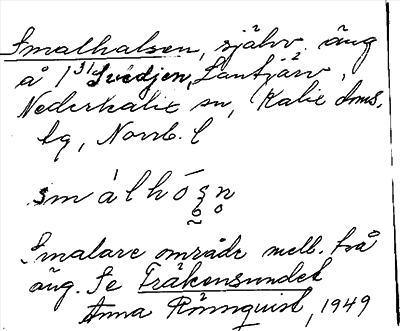 Smalhalsen, självv. äng
å 1³¹ Svedjen, Lantjärv,
Nederkalix sn, Kalix doms.
tg, Norrb. l
smálhó̀sn
Smalare område mell. två
äng. Se Träkensundet
Anna Rönnquist, 1949